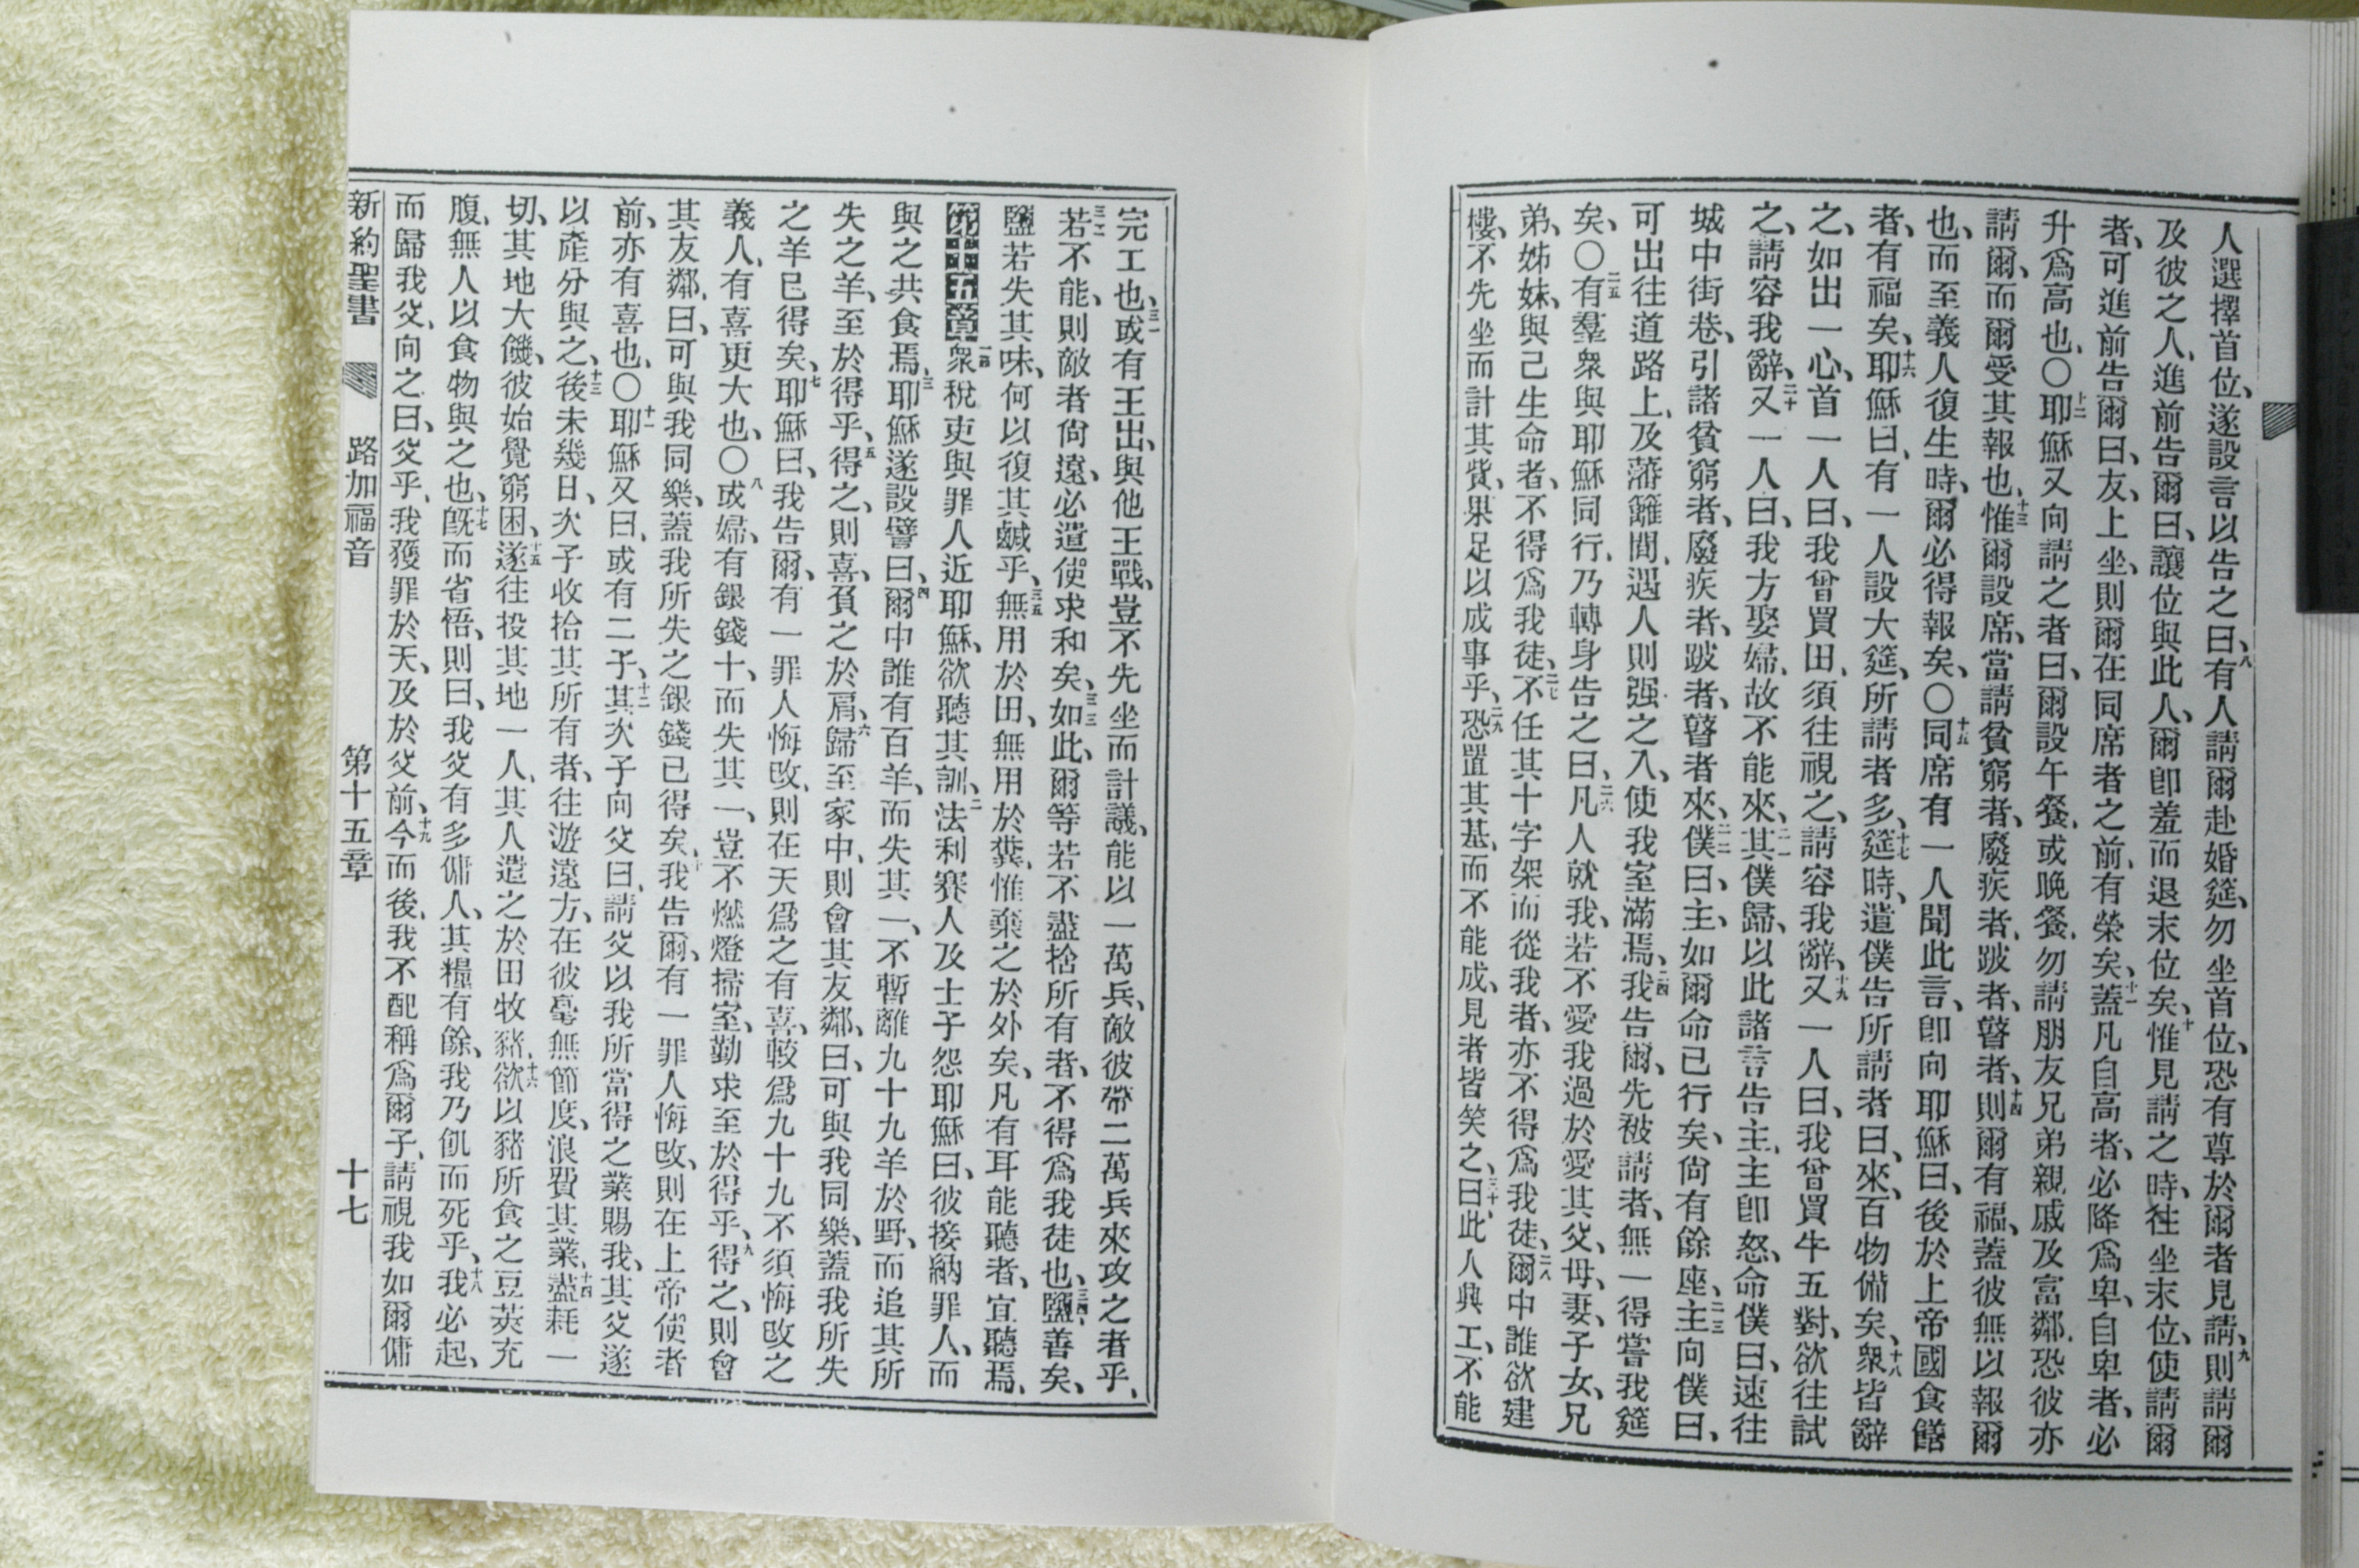 人選擇首位、遂設言以告之曰、八有人請爾赴婚筵、勿坐首位、恐有尊於爾者見請、九則請爾
及彼之人、進前告爾曰、讓位與此人、爾卽羞而退末位矣、十惟見請之時、往坐末位、使請爾
者、可進前告爾曰、友、上坐、則爾在同席者之前、有榮矣、十一蓋凡自高者、必降爲卑、自卑者、必
升爲高也、〇十二耶穌又向請之者曰、爾設午餐、或晚餐、勿請朋友兄弟親戚及富鄰、恐彼亦
請爾、而爾受其報也、十三惟爾設席、當請貧窮者、廢疾者、跛者、瞽者、十四則爾有福、蓋彼無以報爾
也、而至義人復生時、爾必得報矣、〇十五同席有一人聞此言、卽向耶穌曰、後於上帝國食饍
者、有福矣、十六耶穌曰、有一人設大筵、所請者多、十七筵時、遣僕告所請者曰、來、百物備矣、十八衆皆辭
之、如出一心、首一人曰、我曾買田、須往視之、請容我辭、十九又一人曰、我曾買牛五對、欲往試
之、請容我辭、二十又一人曰、我方娶婦、故不能來、二一其僕歸、以此諸言告主、主卽怒、命僕曰、速往
城中街巷、引諸貧窮者、廢疾者、跛者、瞽者來、二二僕曰、主、如爾命已行矣、尙有餘座、二三主向僕曰、
可出往道路上、及藩籬間、遇人則强之入、使我室滿焉、二四我告爾、先被請者、無一得嘗我筵
矣、〇二五有羣衆與耶穌同行、乃轉身告之曰、二六凡人就我、若不愛我過於愛其父、母、妻、子女、兄
弟、姊妹、與己生命者、不得爲我徒、二七不任其十字架而從我者、亦不得爲我徒、二八爾中誰欲建
樓、不先坐而計其貲、果足以成事乎、二九恐置其基、而不能成、見者皆笑之、三十曰、此人興工、不能
完工也、三一或有王出、與他王戰、豈不先坐而計議、能以一萬兵、敵彼帶二萬兵來攻之者乎、
三二若不能、則敵者尙遠、必遣使求和矣、三三如此、爾等若不盡捨所有者、不得爲我徒也、三四鹽、善矣、
鹽若失其味、何以復其鹹乎、三五無用於田、無用於糞、惟棄之於外矣、凡有耳能聽者、宜聽焉、
第十五章一衆稅吏與罪人近耶穌、欲聽其訓、二法利賽人及士子怨耶穌曰、彼接納罪人、而
與之共食焉、三耶穌遂設譬曰、四爾中誰有百羊、而失其一、不暫離九十九羊於野、而追其所
失之羊、至於得乎、五得之、則喜、負之於肩、六歸至家中、則會其友鄰、曰、可與我同樂、蓋我所失
之羊已得矣、七耶穌曰、我告爾、有一罪人悔改、則在天爲之有喜、較爲九十九不須悔改之
義人、有喜更大也、〇八或婦、有銀錢十、而失其一、豈不燃燈掃室、勤求至於得乎、九得之、則會
其友鄰、曰、可與我同樂、蓋我所失之銀錢已得矣、十我告爾、有一罪人悔改、則在上帝使者
前、亦有喜也、〇十一耶穌又曰、或有二子、十二其次子向父曰、請父以我所當得之業賜我、其父遂
以產分與之、十三後未幾日、次子收拾其所有者、往遊遠方、在彼毫無節度、浪費其業、十四盡耗一
切、其地大饑、彼始覺窮困、十五遂往投其地一人、其人遣之於田牧豬、十六欲以豬所食之豆莢充
腹、無人以食物與之也、十七旣而省悟、則曰、我父有多傭人、其糧有餘、我乃飢而死乎、十八我必起、
而歸我父、向之曰、父乎、我獲罪於天、及於父前、十九今而後、我不配稱爲爾子、請視我如爾傭
新約聖書 路加福音 第十五章 十七